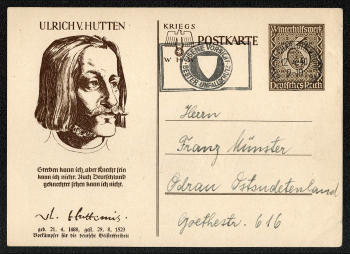 ULRICH V. HUTTEN
KRIEGS
W H W
POSTKARTE
Winterhilfswerk
Deutsches Reich
Sterben kann ich, aber Knecht sein
kann ich nicht. Auch Deutschland
geknechtet sehen kann ich nicht.
geb. 21. 4. 1488, gest. 29. 8. 1523
Vorkämpfer für die deutsche Geistesfreiheit
Herrn
Franz Münster
Odrau Ostsudetenland
Goethestr. 616